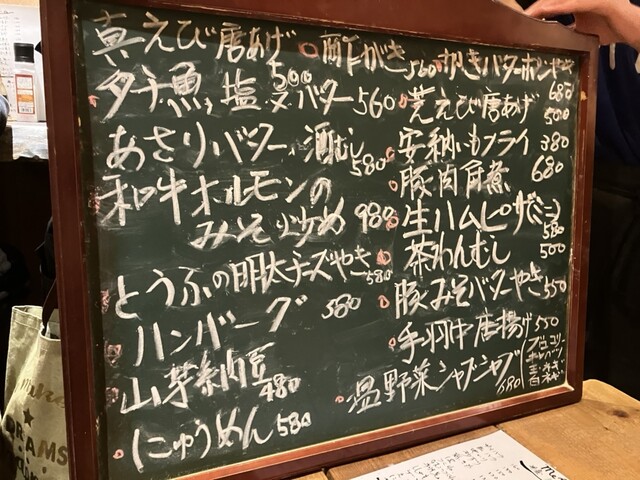 真えび唐あげ 500
タチ魚塩orバター 560
あさりバター酒むし 580
和牛ホルモンの
みそ炒め 980
とうふの明太チーズやき 580
ハンバーグ 580
山芋納豆 480
にゅうめん 580
酢がき 560
かきバターポンやき 680
芝えび唐あげ 500
安納いもフライ 380
豚肉角煮 680
生ハムピザ(ミニ) 580
茶わんむし 500
豚みそバターやき 550
手羽中唐揚げ 550
温野菜シャブシャブ 580
ブロッコリー
キャベツ